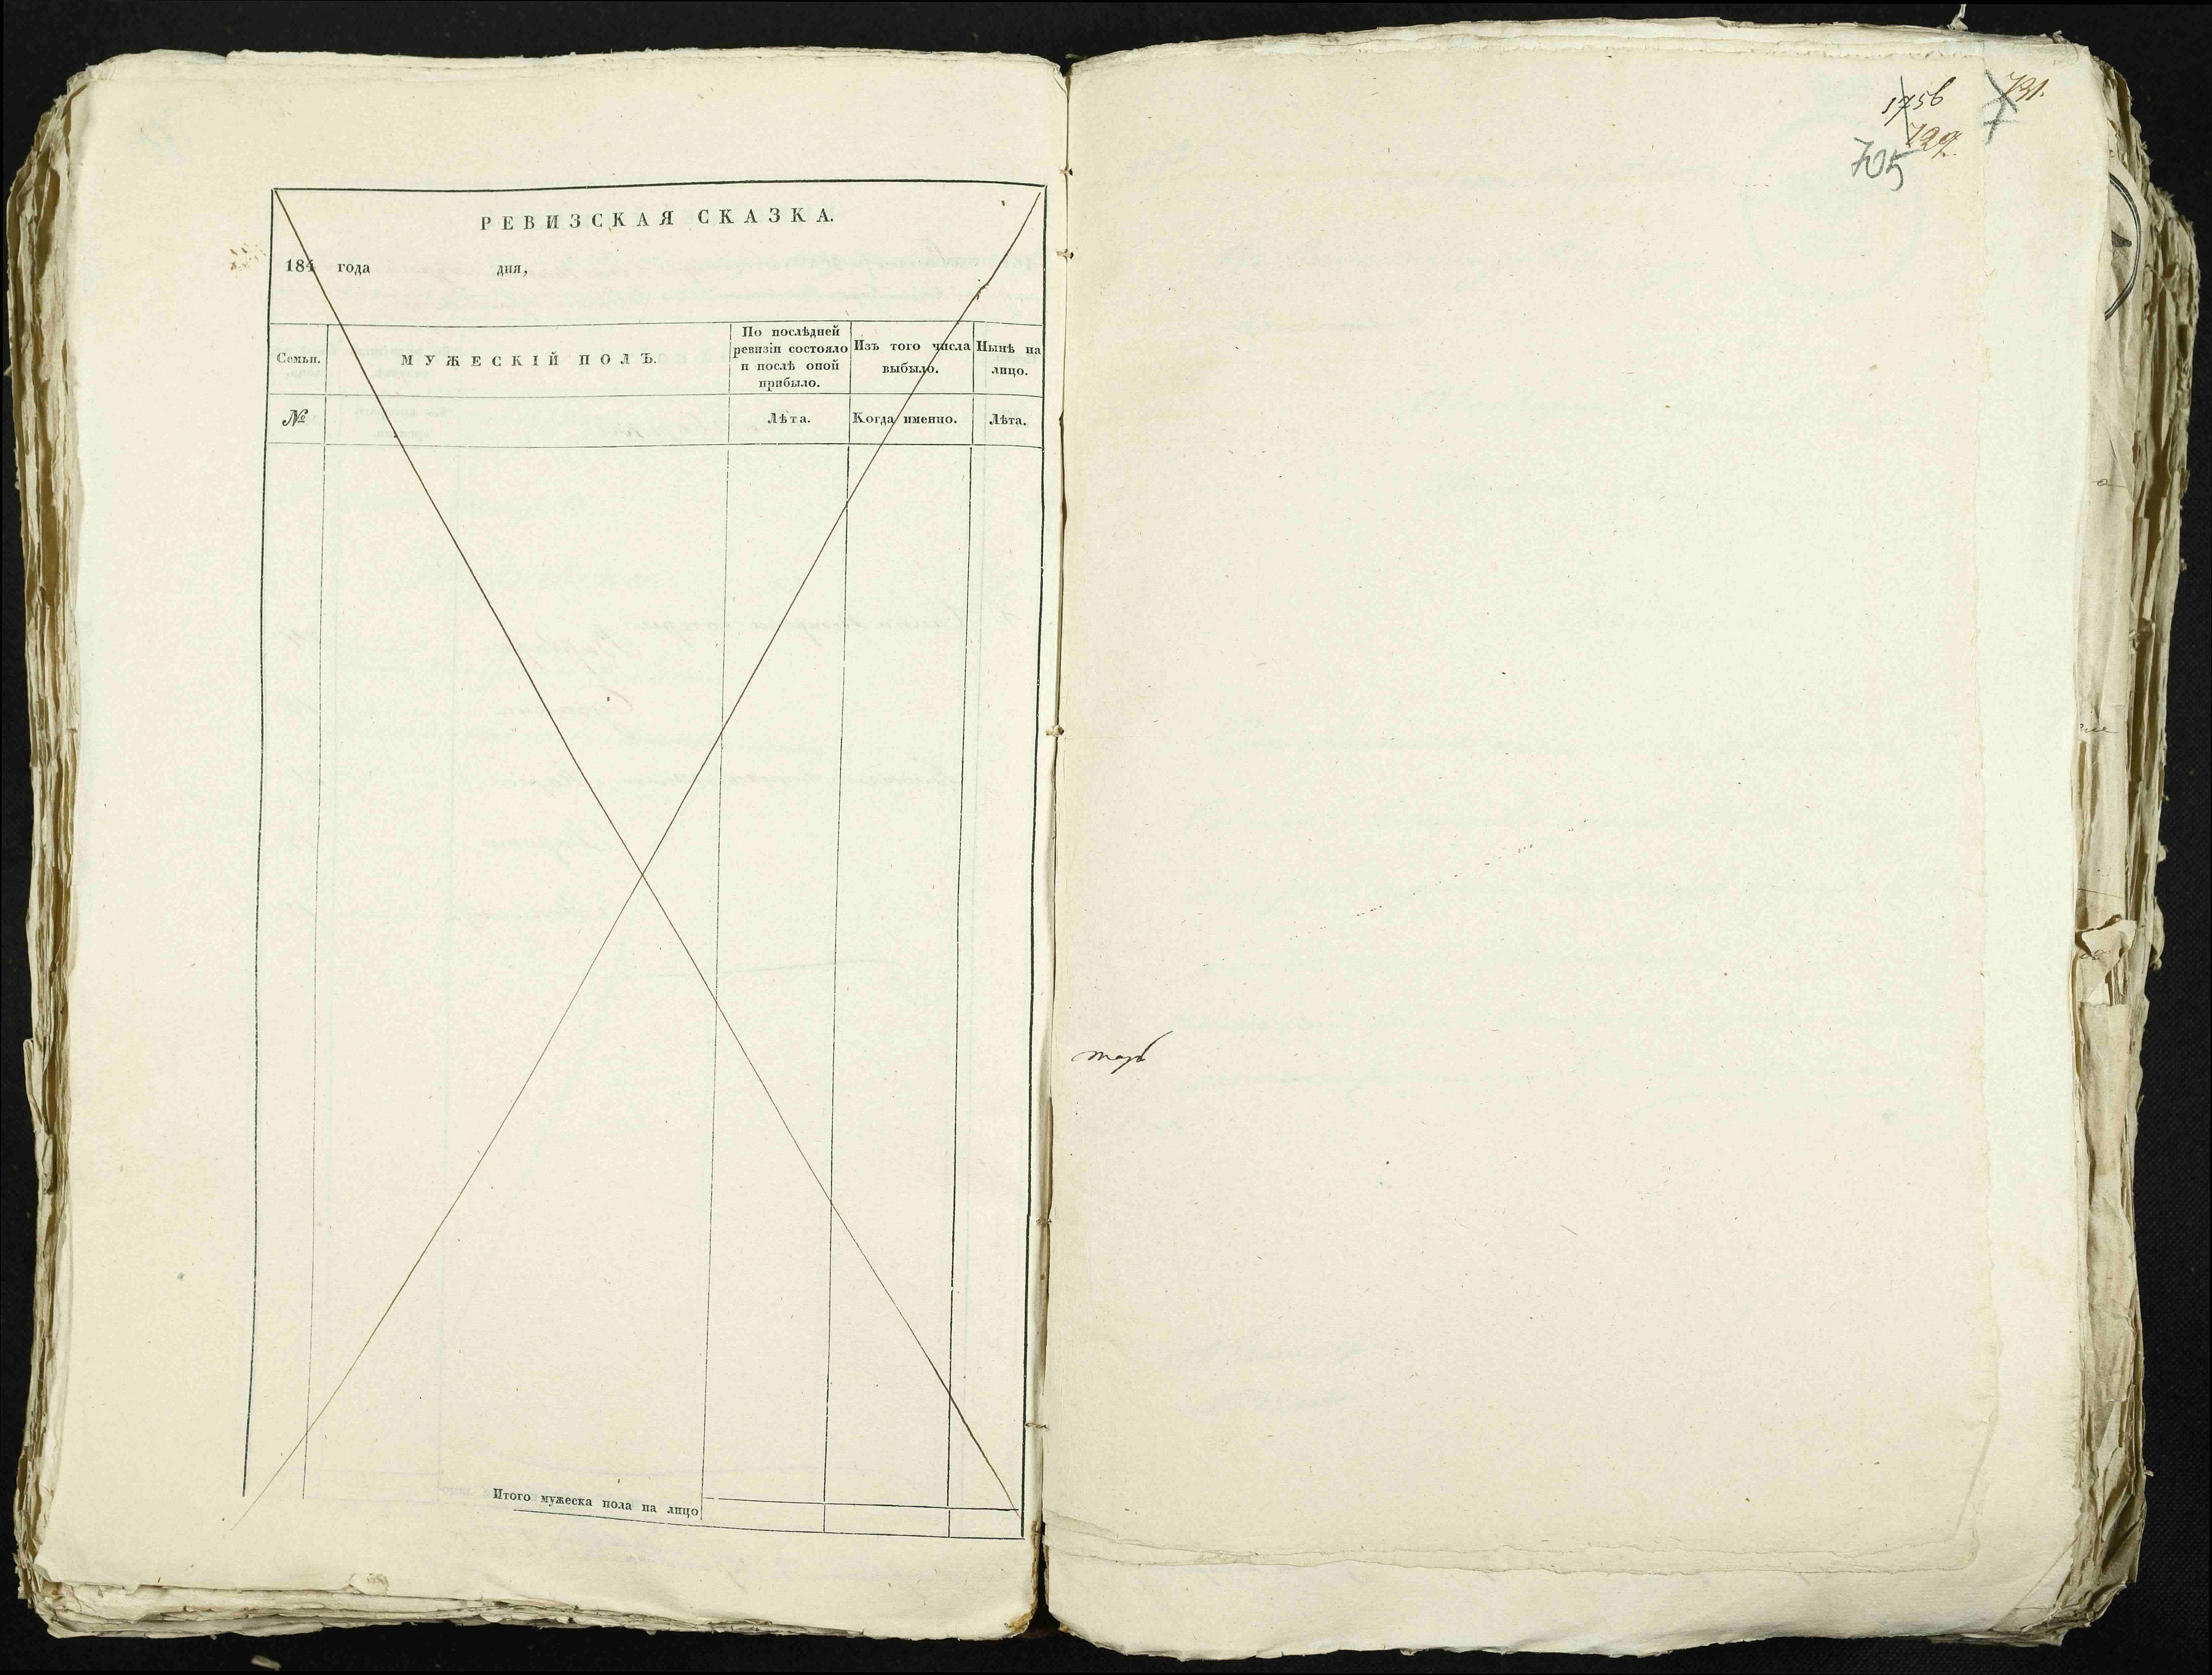 РЕВИЗСКАЯ СКАЗКА.
184 года дня,
Семьи.
МУЖЕСКІЙ ПОЛЪ.
По послѣдней
ревизіи состояло
и послѣ оной
прибыло.
Изъ того числа
выбыло.
Нынѣ на
лицо.
№
Лѣта.
Когда именно.
Лѣта.
Итого мужеска пола на лицо
1756
731.
729.
705